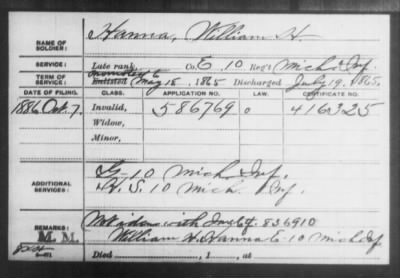 NAME OF SOLDIER: Hanna, William H.
SERVICE: Late rank, Co. E, 10 Reg't Mich Inf.
TERM OF SERVICE: Enlisted May 18, 1865 Discharged July 19, 1865.
DATE OF FILING. CLASS. APPLICATION NO. LAW. CERTIFICATE NO.
1886 Oct. 7. Invalid, 586769 0 416325
Widow,
Minor,
ADDITIONAL SERVICES: G 10 Mich Inf.
10 Mich. Inf.
REMARKS: with Inv 836910
M. M. William H. Hanna E. 10 Mich Inf
Died , 1 , at